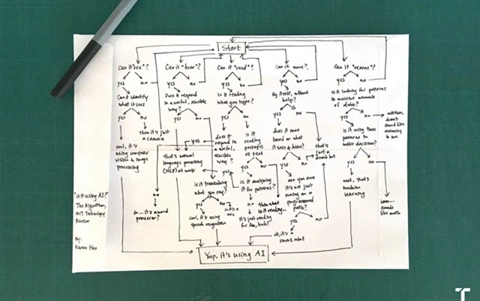 Start
Can it "see"?
yes
no
Can it identify
what it sees
yes
no
then it's just
a camera
cool, it's
using computer
vision & image
processing
Can it "hear"?
yes
no
Does it respond
in a useful, sensible
way?
yes
no
that's natural
language processing
(NLP) at work
Can it "read"?
yes
no
Is it reading
what you type?
yes
no
Does it
respond in
a useful,
sensible way?
yes
no
Is it
reading
passages
of text
yes
no
Is it analyzing
it for patterns?
yes
no
then what
is it reading...
it's just reading
for fun, huh?
Is it transcribing
what you say?
yes
no
cool, it's using
speech recognition
so... it's a word
processor?
Can it move?
yes
no
By itself, without
help?
yes
no
does it move
based on what
it sees & hears?
yes
no
are you sure
it's not just
moving on a
pre-programmed
path?
yes
no
ok, it's
that's
just a
Can it "reason"?
yes
no
Is it looking for patterns
in massive amounts
of data?
yes
no
Is it using those
patterns to
make decisions?
yes
no
neat, that's
machine
learning
sounds
like math
Yup, it's using AI
"Is it using AI?"
The Algorithm,
MIT Technology
Review
By:
Karen Hao